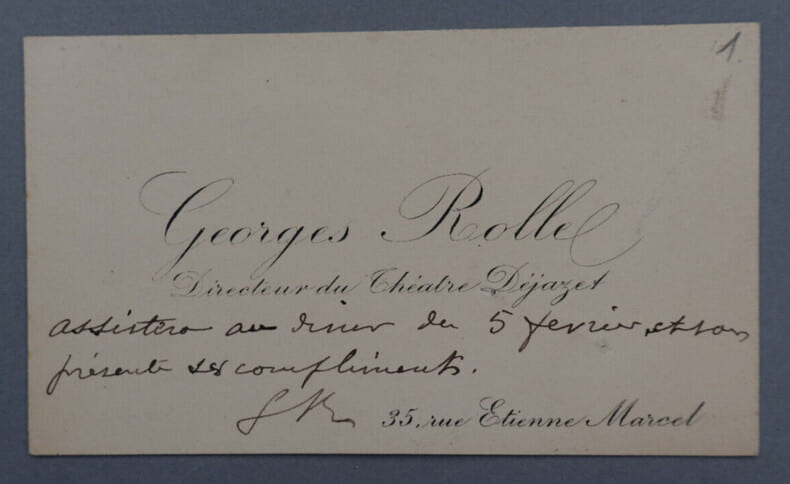 1.
Georges Rolle
Directeur du Théatre Déjazet
assistera au diner du 5 fevrier, et vous
présente ses compliments.
GR 35, rue Etienne Marcel